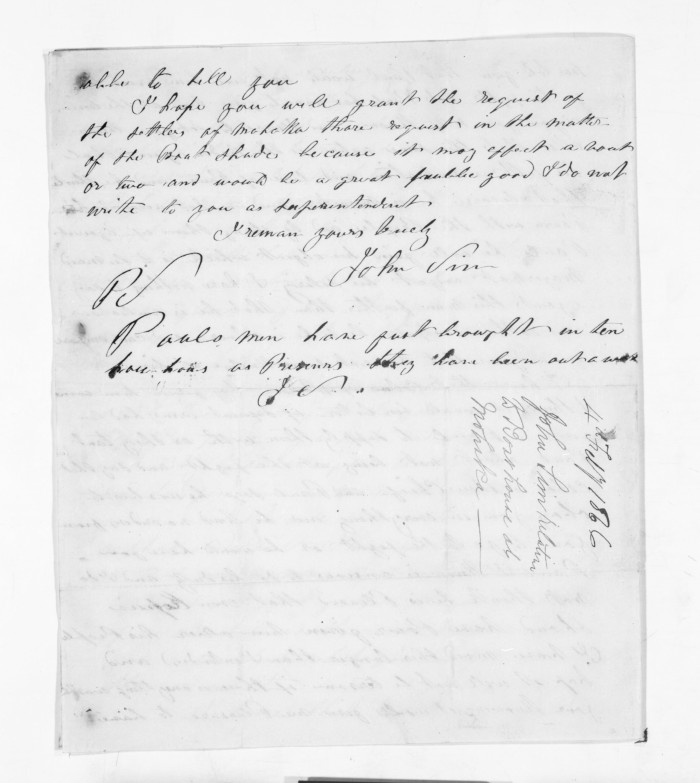 able to tell you
I hope you will grant the request of
the settlers of mahaka thare request in the matter
of the Boat Shades because it may effect a vout
or two and would be a great publie good I do not
write to you as superentendent
I reman yours truely
John Sim
PS
Paulo men have just brought in ten
hou hous as Preseners they have been out a week
J S.
4th Feby 1866
John Sim relative
to Boat house at
Mohaka